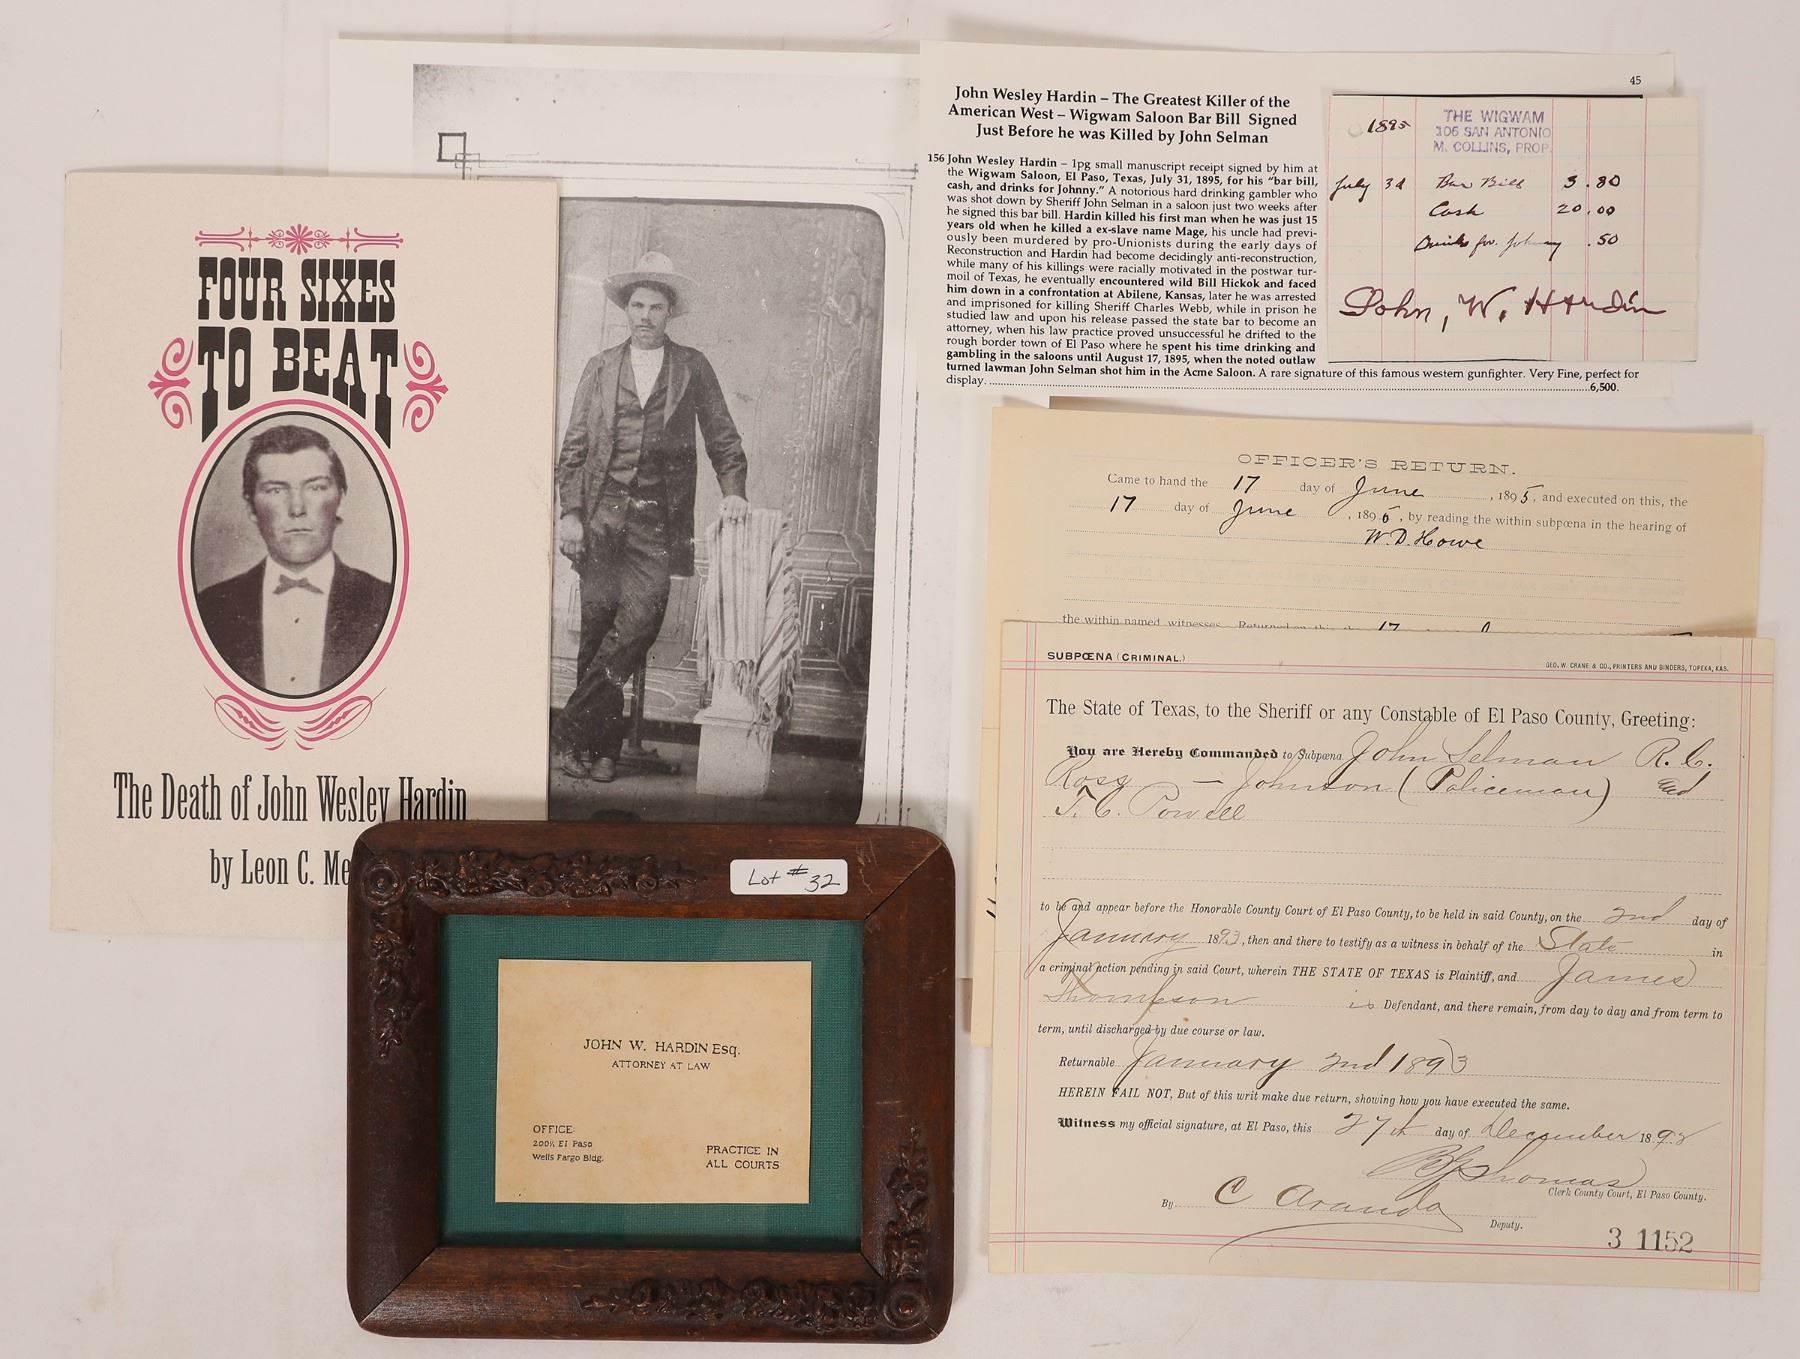 FOUR SIXES
TO BEAT
The Death of John Wesley Hardin
by Leon C. Me
45
John Wesley Hardin – The Greatest Killer of the
American West – Wigwam Saloon Bar Bill Signed
Just Before he was Killed by John Selman
156 John Wesley Hardin – 1pg small manuscript receipt signed by him at
the Wigwam Saloon, El Paso, Texas, July 31, 1895, for his "bar bill,
cash, and drinks for Johnny." A notorious hard drinking gambler who
was shot down by Sheriff John Selman in a saloon just two weeks after
he signed this bar bill. Hardin killed his first man when he was just 15
years old when he killed a ex-slave name Mage, his uncle had previ-
ously been murdered by pro-Unionists during the early days of
Reconstruction and Hardin had become decidingly anti-reconstruction,
while many of his killings were racially motivated in the postwar tur-
moil of Texas, he eventually encountered wild Bill Hickok and faced
him down in a confrontation at Abilene, Kansas, later he was arrested
and imprisoned for killing Sheriff Charles Webb, while in prison he
studied law and upon his release passed the state bar to become an
attorney, when his law practice proved unsuccessful he drifted to the
rough border town of El Paso where he spent his time drinking and
gambling in the saloons until August 17, 1895, when the noted outlaw
turned lawman John Selman shot him in the Acme Saloon. A rare signature of this famous western gunfighter. Very Fine, perfect for
display. 6,500.
1895
THE WIGWAM
106 SAN ANTONIO
M. COLLINS, PROP.
July 31 Bar Bill 3.80
Cash 20.00
Drinks for Johnny .50
John, W. Hardin
OFFICER'S RETURN.
Came to hand the 17 day of June, 1895, and executed on this, the
17 day of June, 1895, by reading the within subpœna in the hearing of
W. D. Howe
the within named witnesses. Returned on this the 17
SUBPŒNA (CRIMINAL.)
GEO. W. CRANE & CO., PRINTERS AND BINDERS, TOPEKA, KAS.
The State of Texas, to the Sheriff or any Constable of El Paso County, Greeting:
You are Hereby Commanded to Subpœna John Selman R. C.
Ross — Johnson (Policeman) and
T. C. Powell
to be and appear before the Honorable County Court of El Paso County, to be held in said County, on the 2nd day of
January 1893, then and there to testify as a witness in behalf of the State in
a criminal action pending in said Court, wherein THE STATE OF TEXAS is Plaintiff, and James
Thompson is Defendant, and there remain, from day to day and from term to
term, until discharged by due course or law.
Returnable January 2nd 1893
HEREIN FAIL NOT, But of this writ make due return, showing how you have executed the same.
Witness my official signature, at El Paso, this 27th day of December 1892
Thomas
Clerk County Court, El Paso County.
By C Aranda
Deputy.
3 1152
Lot # 32
JOHN W. HARDIN Esq.
ATTORNEY AT LAW
OFFICE:
200½ El Paso
Wells Fargo Bldg.
PRACTICE IN
ALL COURTS